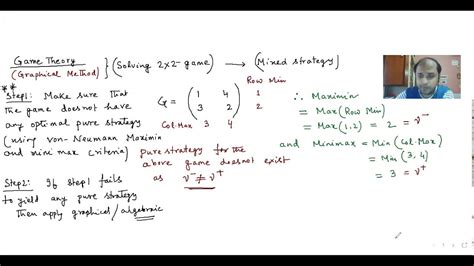 Game Theory
(Graphical Method)
} (Solving 2x2-game) → (Mixed strategy)
* Step1: Make sure that
the game does not have
any optimal pure strategy
(using von-Neumann Maximin
and mini max criteria)
G = (1 4
3 2)
Row Min
1
2
Col.Max 3 4
pure strategy for the
above game does not exist
as ν⁻ ≠ ν⁺
∴ Maximin
= Max(Row Min)
= Max(1,2) = 2 = ν⁻
and Minimax = Min(Col.Max)
= Min(3,4)
= 3 = ν⁺
Step2: If Step1 fails
to yield any pure strategy
then apply graphical/algebraic